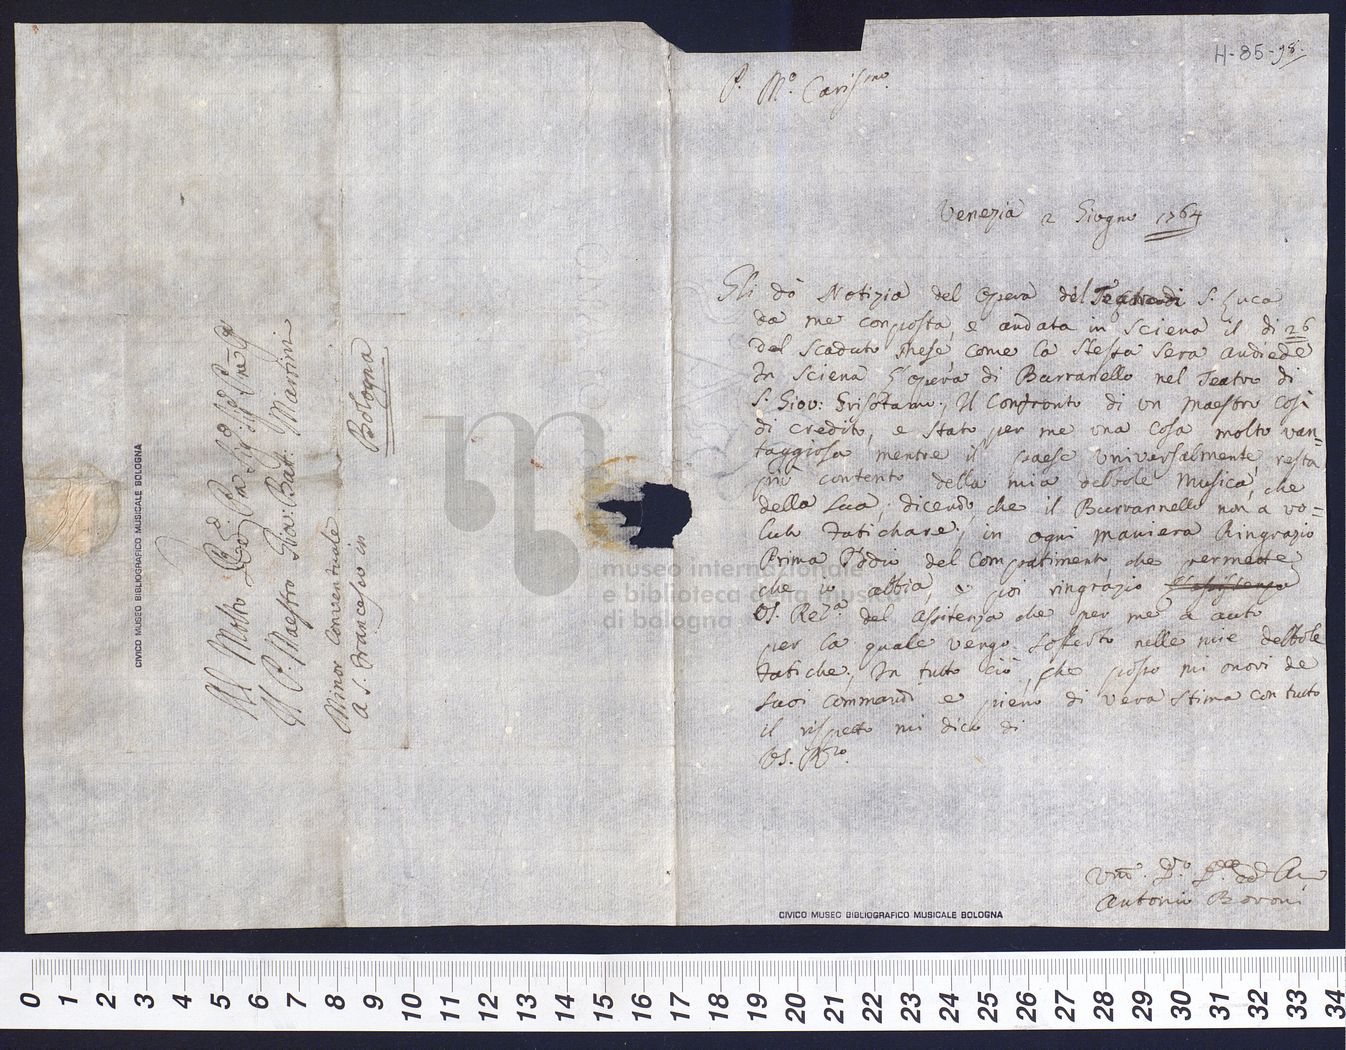 H-85-98.
P. M.º Cariss.mo
Venezia 2 Giugno 1764
Gli dò Notizia del opera del Teatro di S. Luca
da me conposta, e andata in Sciena il di 26
del Scaduto Mese, come la stessa sera andiede
In Sciena l'opera di Burranello nel Teatro di
S. Giov: Grisostamo. Il Confronto di un Maestro Così
di credito, e stato per me una Cosa molto van=
taggiosa mentre il paese universalmente resta
più contento della mia debbole Musica, che
della Sua, dicendo, che il Burrannello non a vo=
luto fatichare, in ogni maniera Ringrazio
Prima Iddio del Compatimento che permette
che abbia, e poi ringrazio
VS. Re.a del asitenza che per me a auto
per la quale vengo soferto nelle mie debbole
fatiche. In tutto ciò, che posso mi onori de
suoi commandi e pieno di vera stima con tutto
il rispetto mi dico di
VS. R.ma
Antonio Boroni
Al Molto
Il P. Maestro Gio: Bat: Martini
Minor Conventuale
a S. Francesco in
Bologna
CIVICO MUSEO BIBLIOGRAFICO MUSICALE BOLOGNA
CIVICO MUSEO BIBLIOGRAFICO MUSICALE BOLOGNA
museo internazionale
e biblioteca della musica
di bologna
0 1 2 3 4 5 6 7 8 9 10 11 12 13 14 15 16 17 18 19 20 21 22 23 24 25 26 27 28 29 30 31 32 33 34